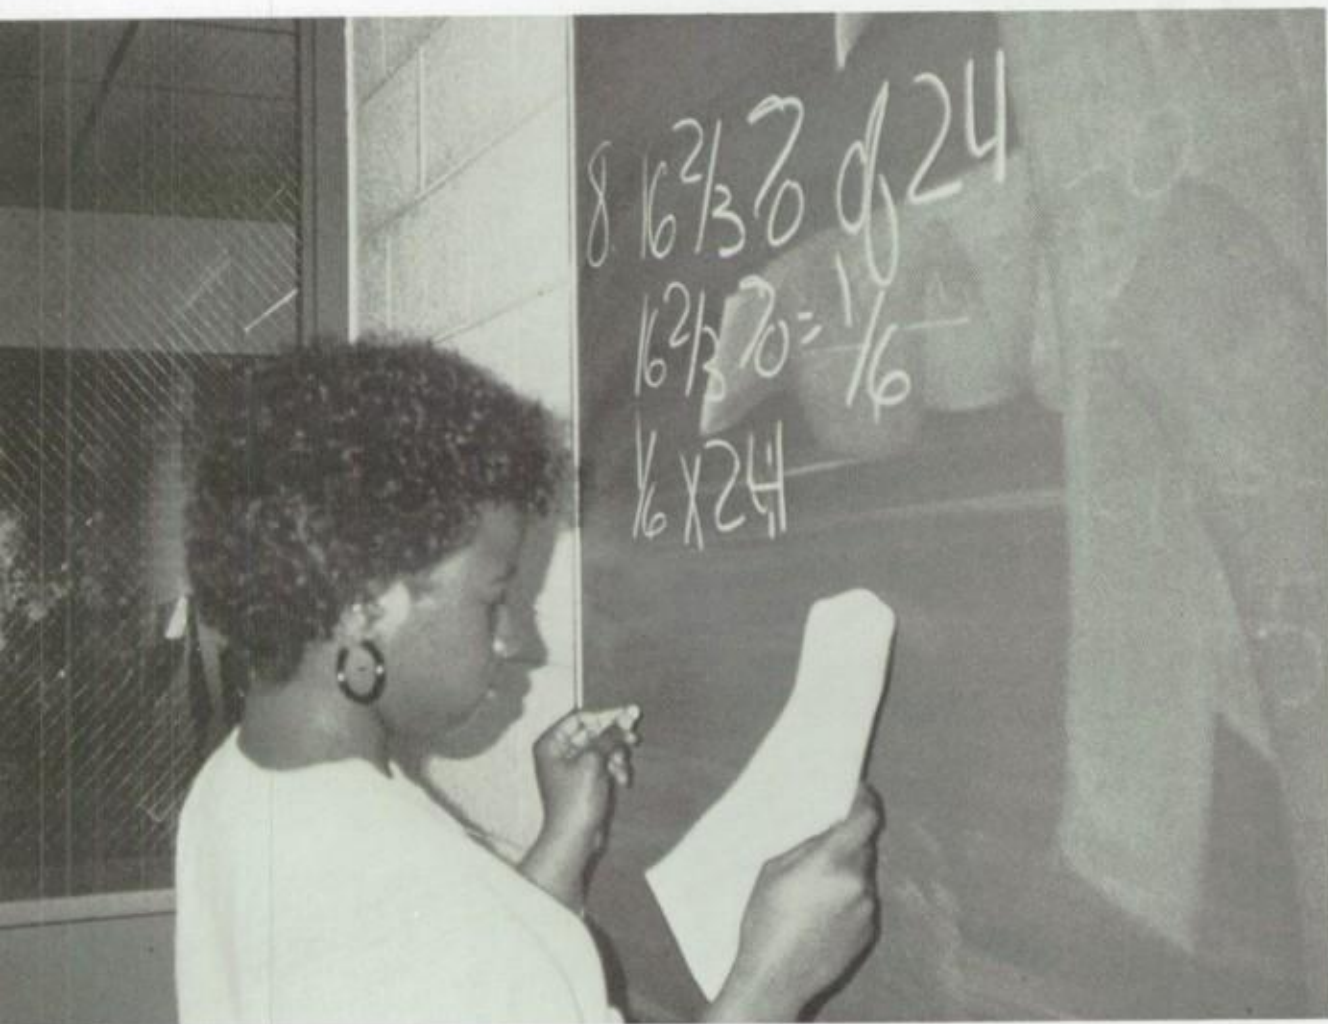 8. 16 2/3 % of 24
16 2/3 % = 1/6
1/6 x 24